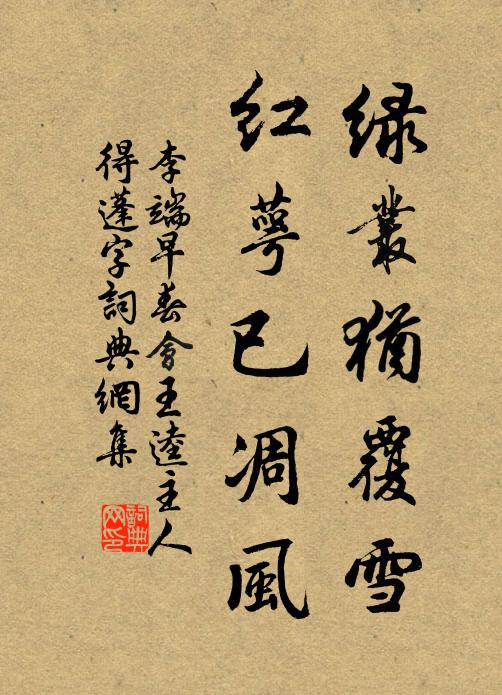 绿叢猶覆雪
红萼已凋風
李端早春會王逵主人
得蓬字詞典網集
詞典
网印